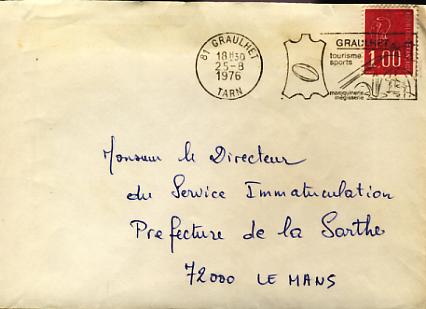 81 GRAULHET
18H30
25-8
1976
TARN
GRAULHET
tourisme
sports
maroquinerie
mégisserie
1,00
Monsieur le Directeur
du Service Immatriculation
Prefecture de la Sarthe
72000 LE MANS